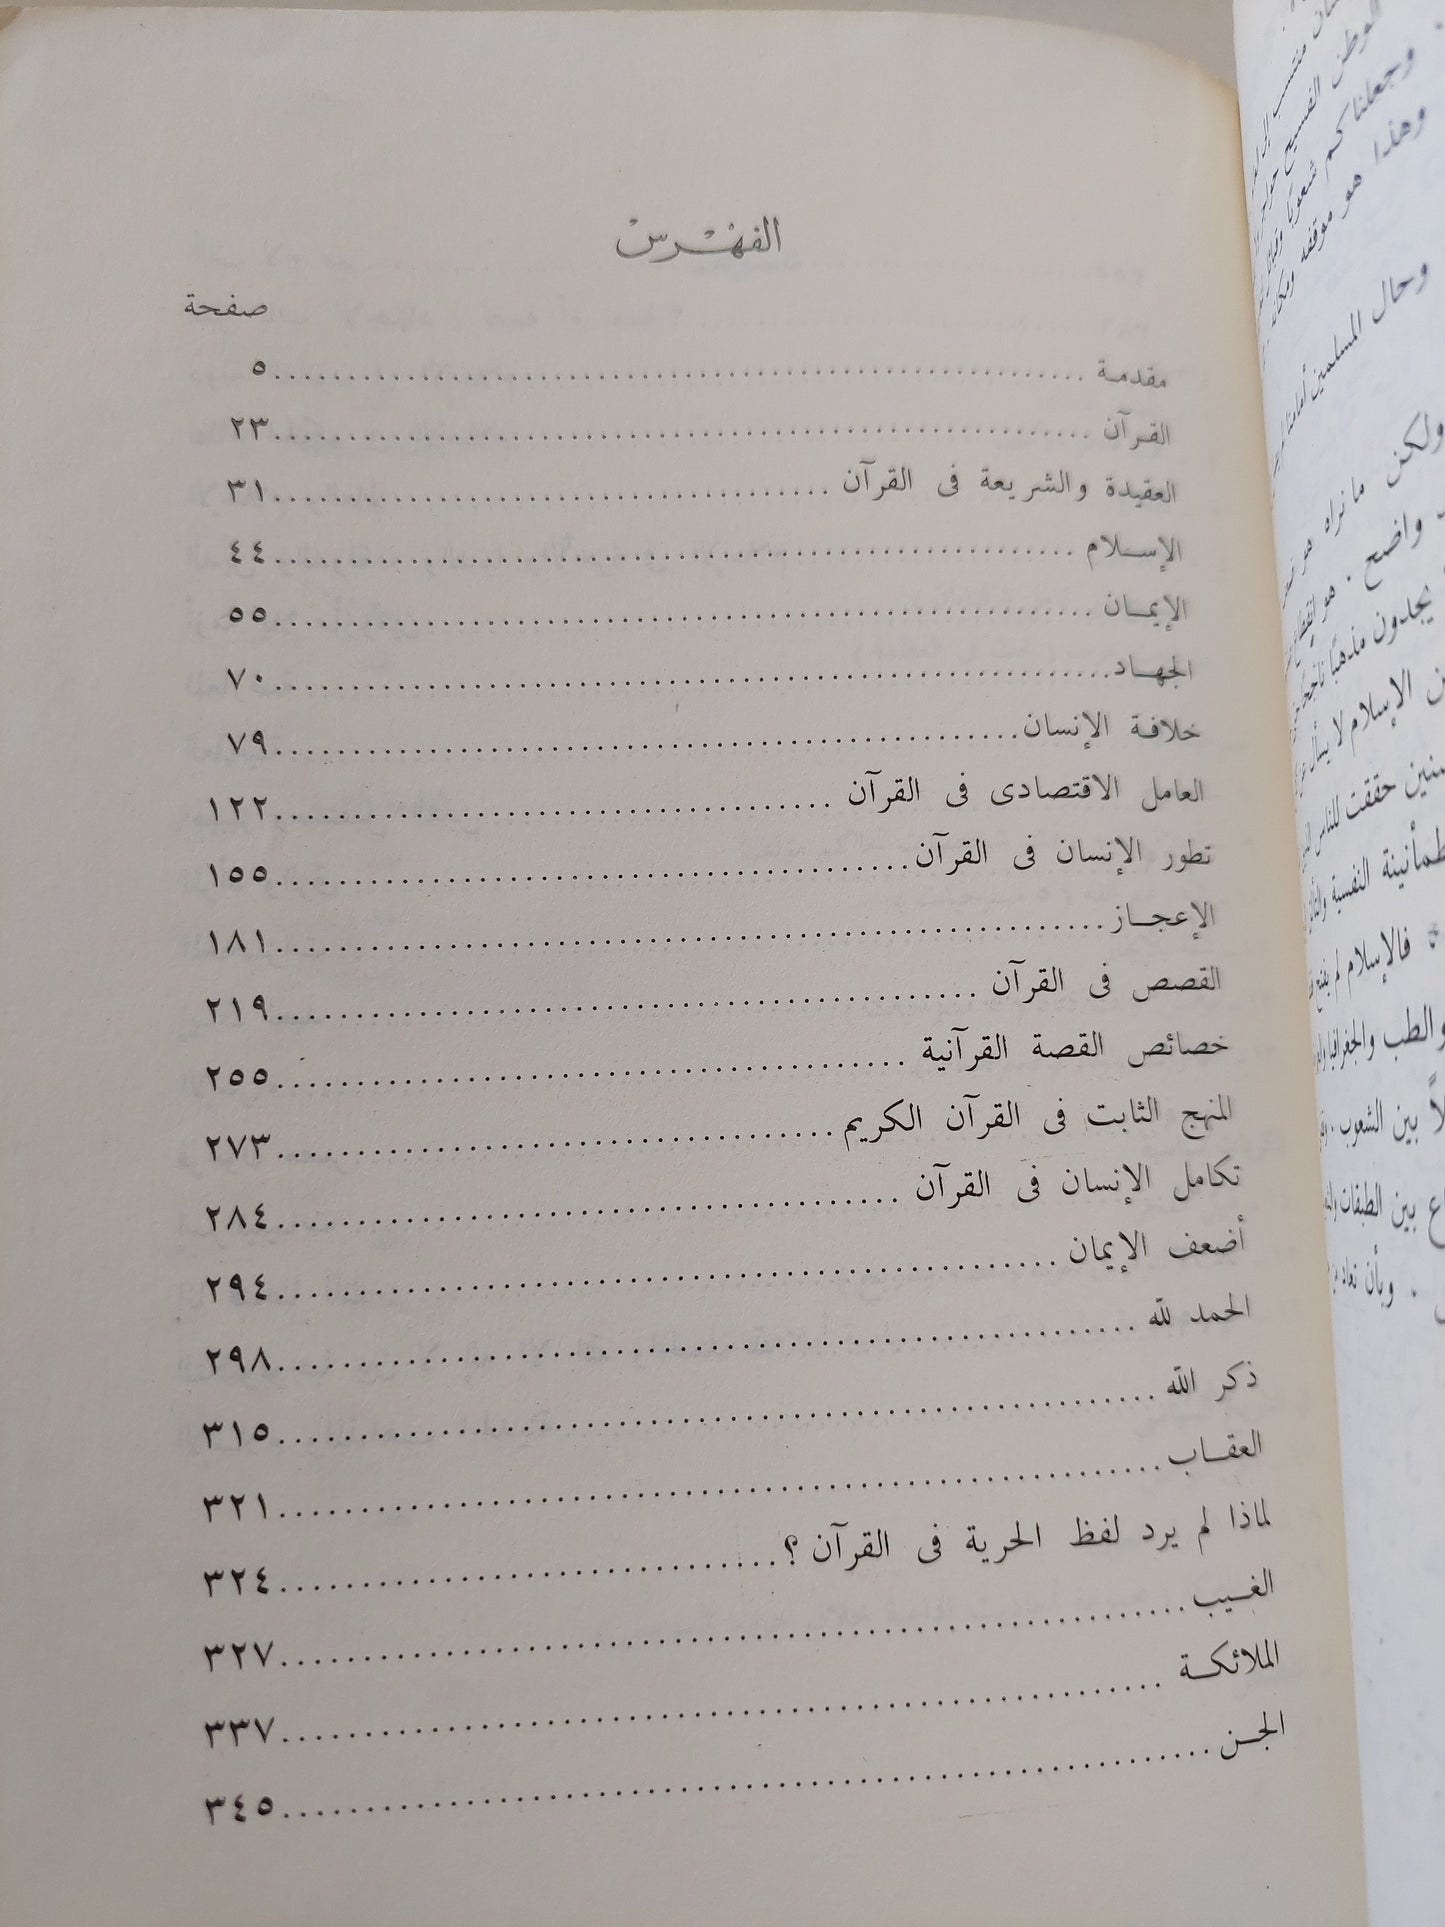 الفهرس
صفحة
مقدمة ........ ٥
القرآن ........ ٢٣
العقيدة والشريعة فى القرآن ........ ٣١
الإسلام ........ ٤٤
الإيمان ........ ٥٥
الجهاد ........ ٧٠
خلافة الإنسان ........ ٧٩
العامل الاقتصادى فى القرآن ........ ١٢٢
تطور الإنسان فى القرآن ........ ١٥٥
الإعجاز ........ ١٨١
القصص فى القرآن ........ ٢١٩
خصائص القصة القرآنية ........ ٢٥٥
المنهج الثابت فى القرآن الكريم ........ ٢٧٣
تكامل الإنسان فى القرآن ........ ٢٨٤
أضعف الإيمان ........ ٢٩٤
الحمد لله ........ ٢٩٨
ذكر الله ........ ٣١٥
العقاب ........ ٣٢١
لماذا لم يرد لفظ الحرية فى القرآن ؟ ........ ٣٢٤
الغيب ........ ٣٢٧
الملائكة ........ ٣٣٧
الجن ........ ٣٤٥
الوطن الفسيح
وجعلناكم شعوبا
وهذا هو موقفه
وحال المسلمين أمامنا
ولكن ما نراه هو
واضح . هو
يجدون مذهبًا
الإسلام لا يسأل
حققت للناس
النفسية
فالإسلام لم
والطب والجغرافيا
بين الشعوب .
بين الطبقات
. وبأن